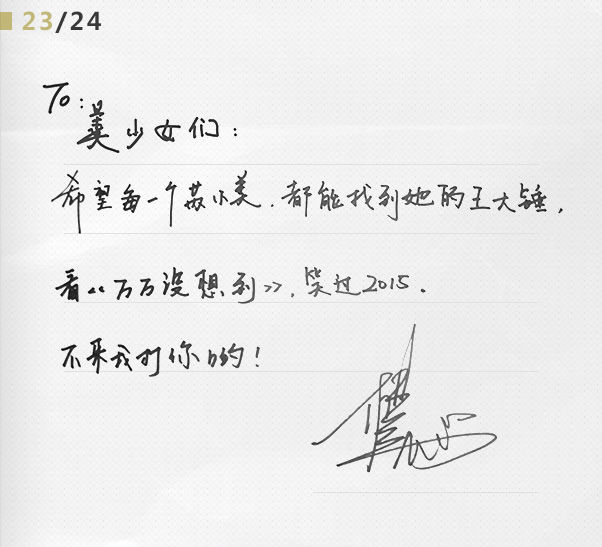 23/24
To:
美少女们:
希望每一个苏小美,都能找到她的王大锤,
看《万万没想到》,笑过2015.
不来我打你哟!